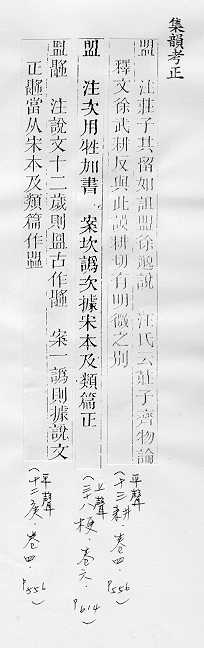 集韻考正
盟 注莊子其留如詛盟徐邈說 汪氏云莊子齊物論
釋文徐武耕反與此謨耕切有明微之別
盟 注次用牲加書 案坎譌次據宋本及類篇正
注說文十二歲則盟古作 案一譌則據說文
正 當从宋本及類篇作
(平聲
十三耕·卷四·P556)
(上聲
三十八梗·卷六·P614)
(平聲
十二庚·卷四·P556)